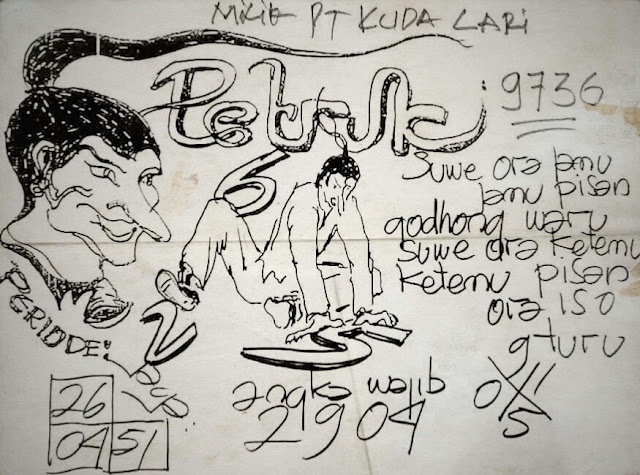 MILIK PT KUDA LARI
Petruk
: 9736
6
Suwe ora jamu
jamu pisan
godhong waru
suwe ora ketemu
ketemu pisan
ora iso
gturu
PERIODE:
2
5
angka wajib
2904
0 11
5
26
04 51